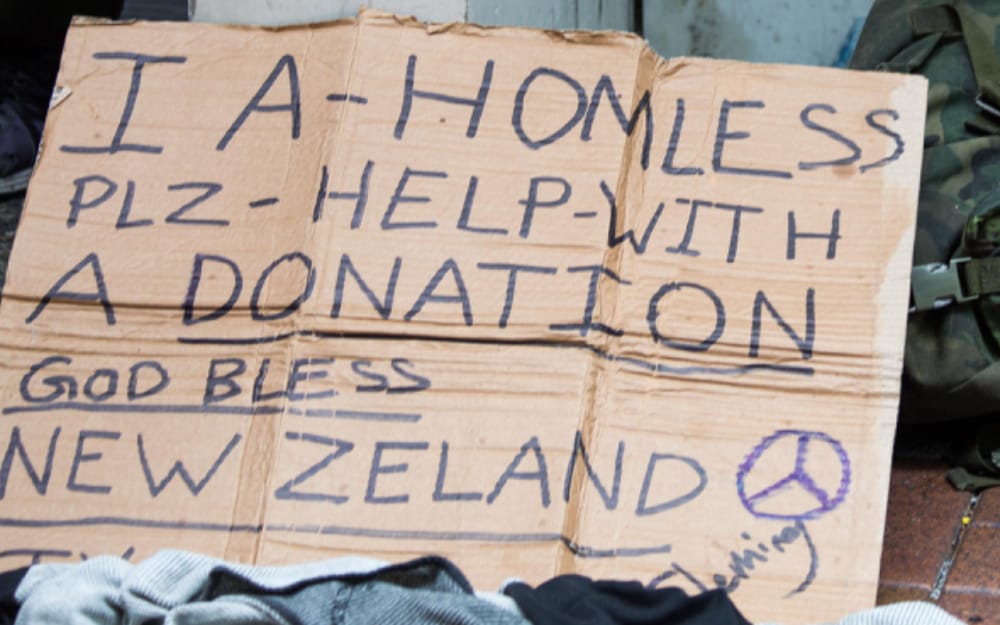 I A-HOMLESS
PLZ-HELP-WITH
A DONATION
GOD BLESS
NEW ZELAND